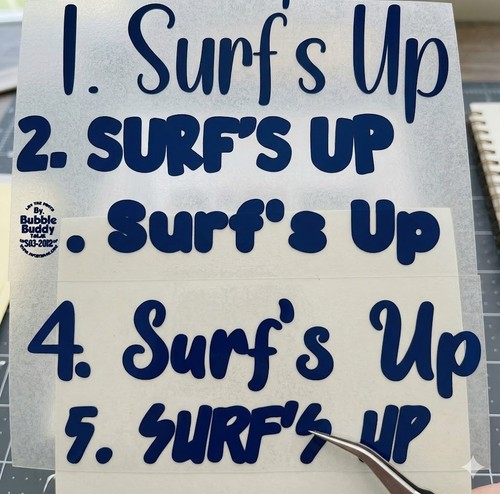 1. Surf's Up
2. SURF'S UP
. Surf's Up
By.
Bubble
Buddy
4. Surf's Up
5. SURF'S UP